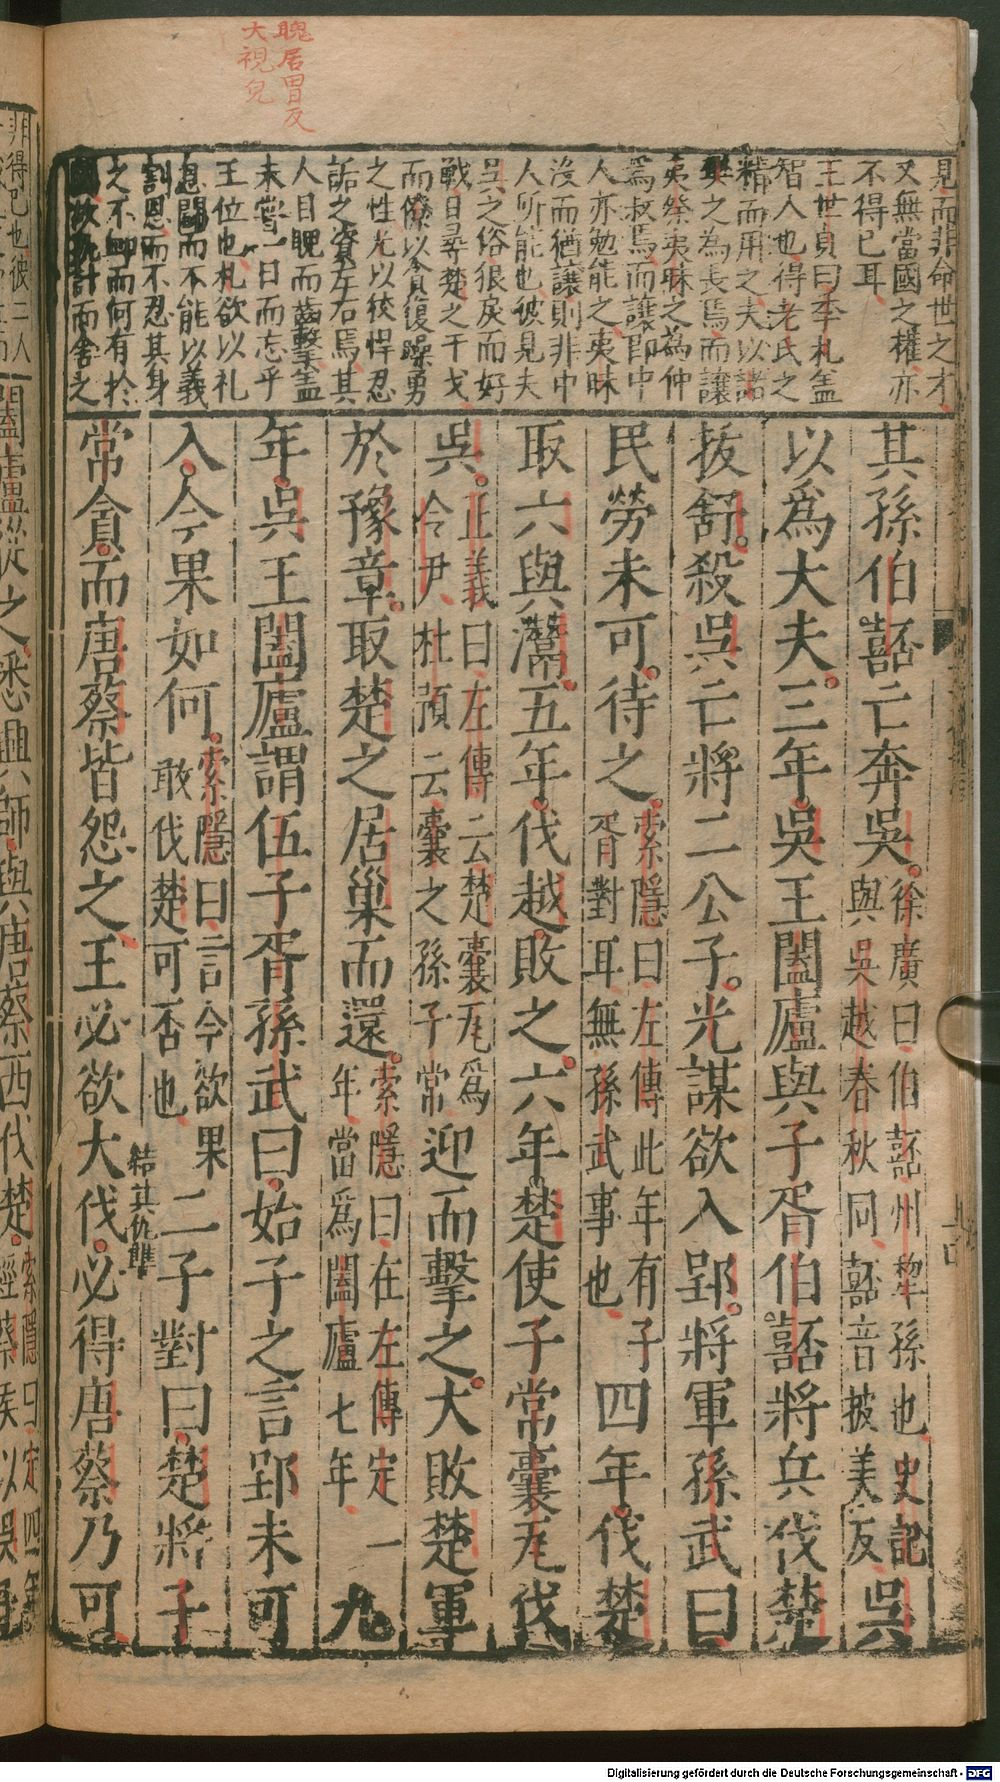 聭居胃反
大視皃
見而非命世之才
又無當國之權亦
不得已耳
王世貞曰季札盖
智人也得老氏之
精而用之夫以諸
樊之為長焉而讓
夷祭夷昧之為仲
爲叔焉而讓即中
人亦勉能之夷昧
沒而猶讓則非中
人所能也彼見夫
吳之俗很戾而好
戰日尋楚之干戈
而僚以貪愎躁勇
之性光以狡悍忍
詬之資左右焉其
人目睨而齒擊盖
未嘗一日而忘乎
王位也札欲以礼
息鬪而不能以義
割恩而不忍其身
之不卹而何有於
國故熟計而舍之
其孫伯嚭亡奔吳徐廣曰伯嚭州犂孫也史記
與吳越春秋同嚭音披美反吳
以爲大夫三年吳王闔廬與子胥伯嚭將兵伐楚
拔舒殺吳亡將二公子光謀欲入郢將軍孫武曰
民勞未可待之索隱曰左傳此年有子
胥對耳無孫武事也四年伐楚
取六與灊五年伐越敗之六年楚使子常囊瓦伐
吳正義曰左傳云楚囊瓦爲
令尹杜預云囊之孫子常迎而擊之大敗楚軍
於豫章取楚之居巢而還索隱曰在左傳定一
年當爲闔廬七年九
年吳王闔廬謂伍子胥孫武曰始子之言郢未可
入今果如何索隱曰言今欲果
敢伐楚可否也二子對曰楚將子
結其仇讐
常貪而唐蔡皆怨之王必欲大伐必得唐蔡乃可
闔廬從之悉興師與唐蔡西伐楚索隱曰定四年
Digitalisierung gefördert durch die Deutsche Forschungsgemeinschaft - DFG